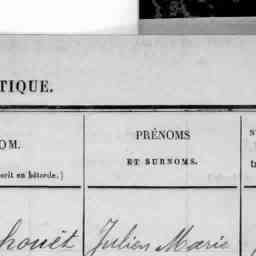 TIQUE.
OM.
PRÉNOMS
ET SURNOMS.
crit en bâtarde.)
houët Julien Marie